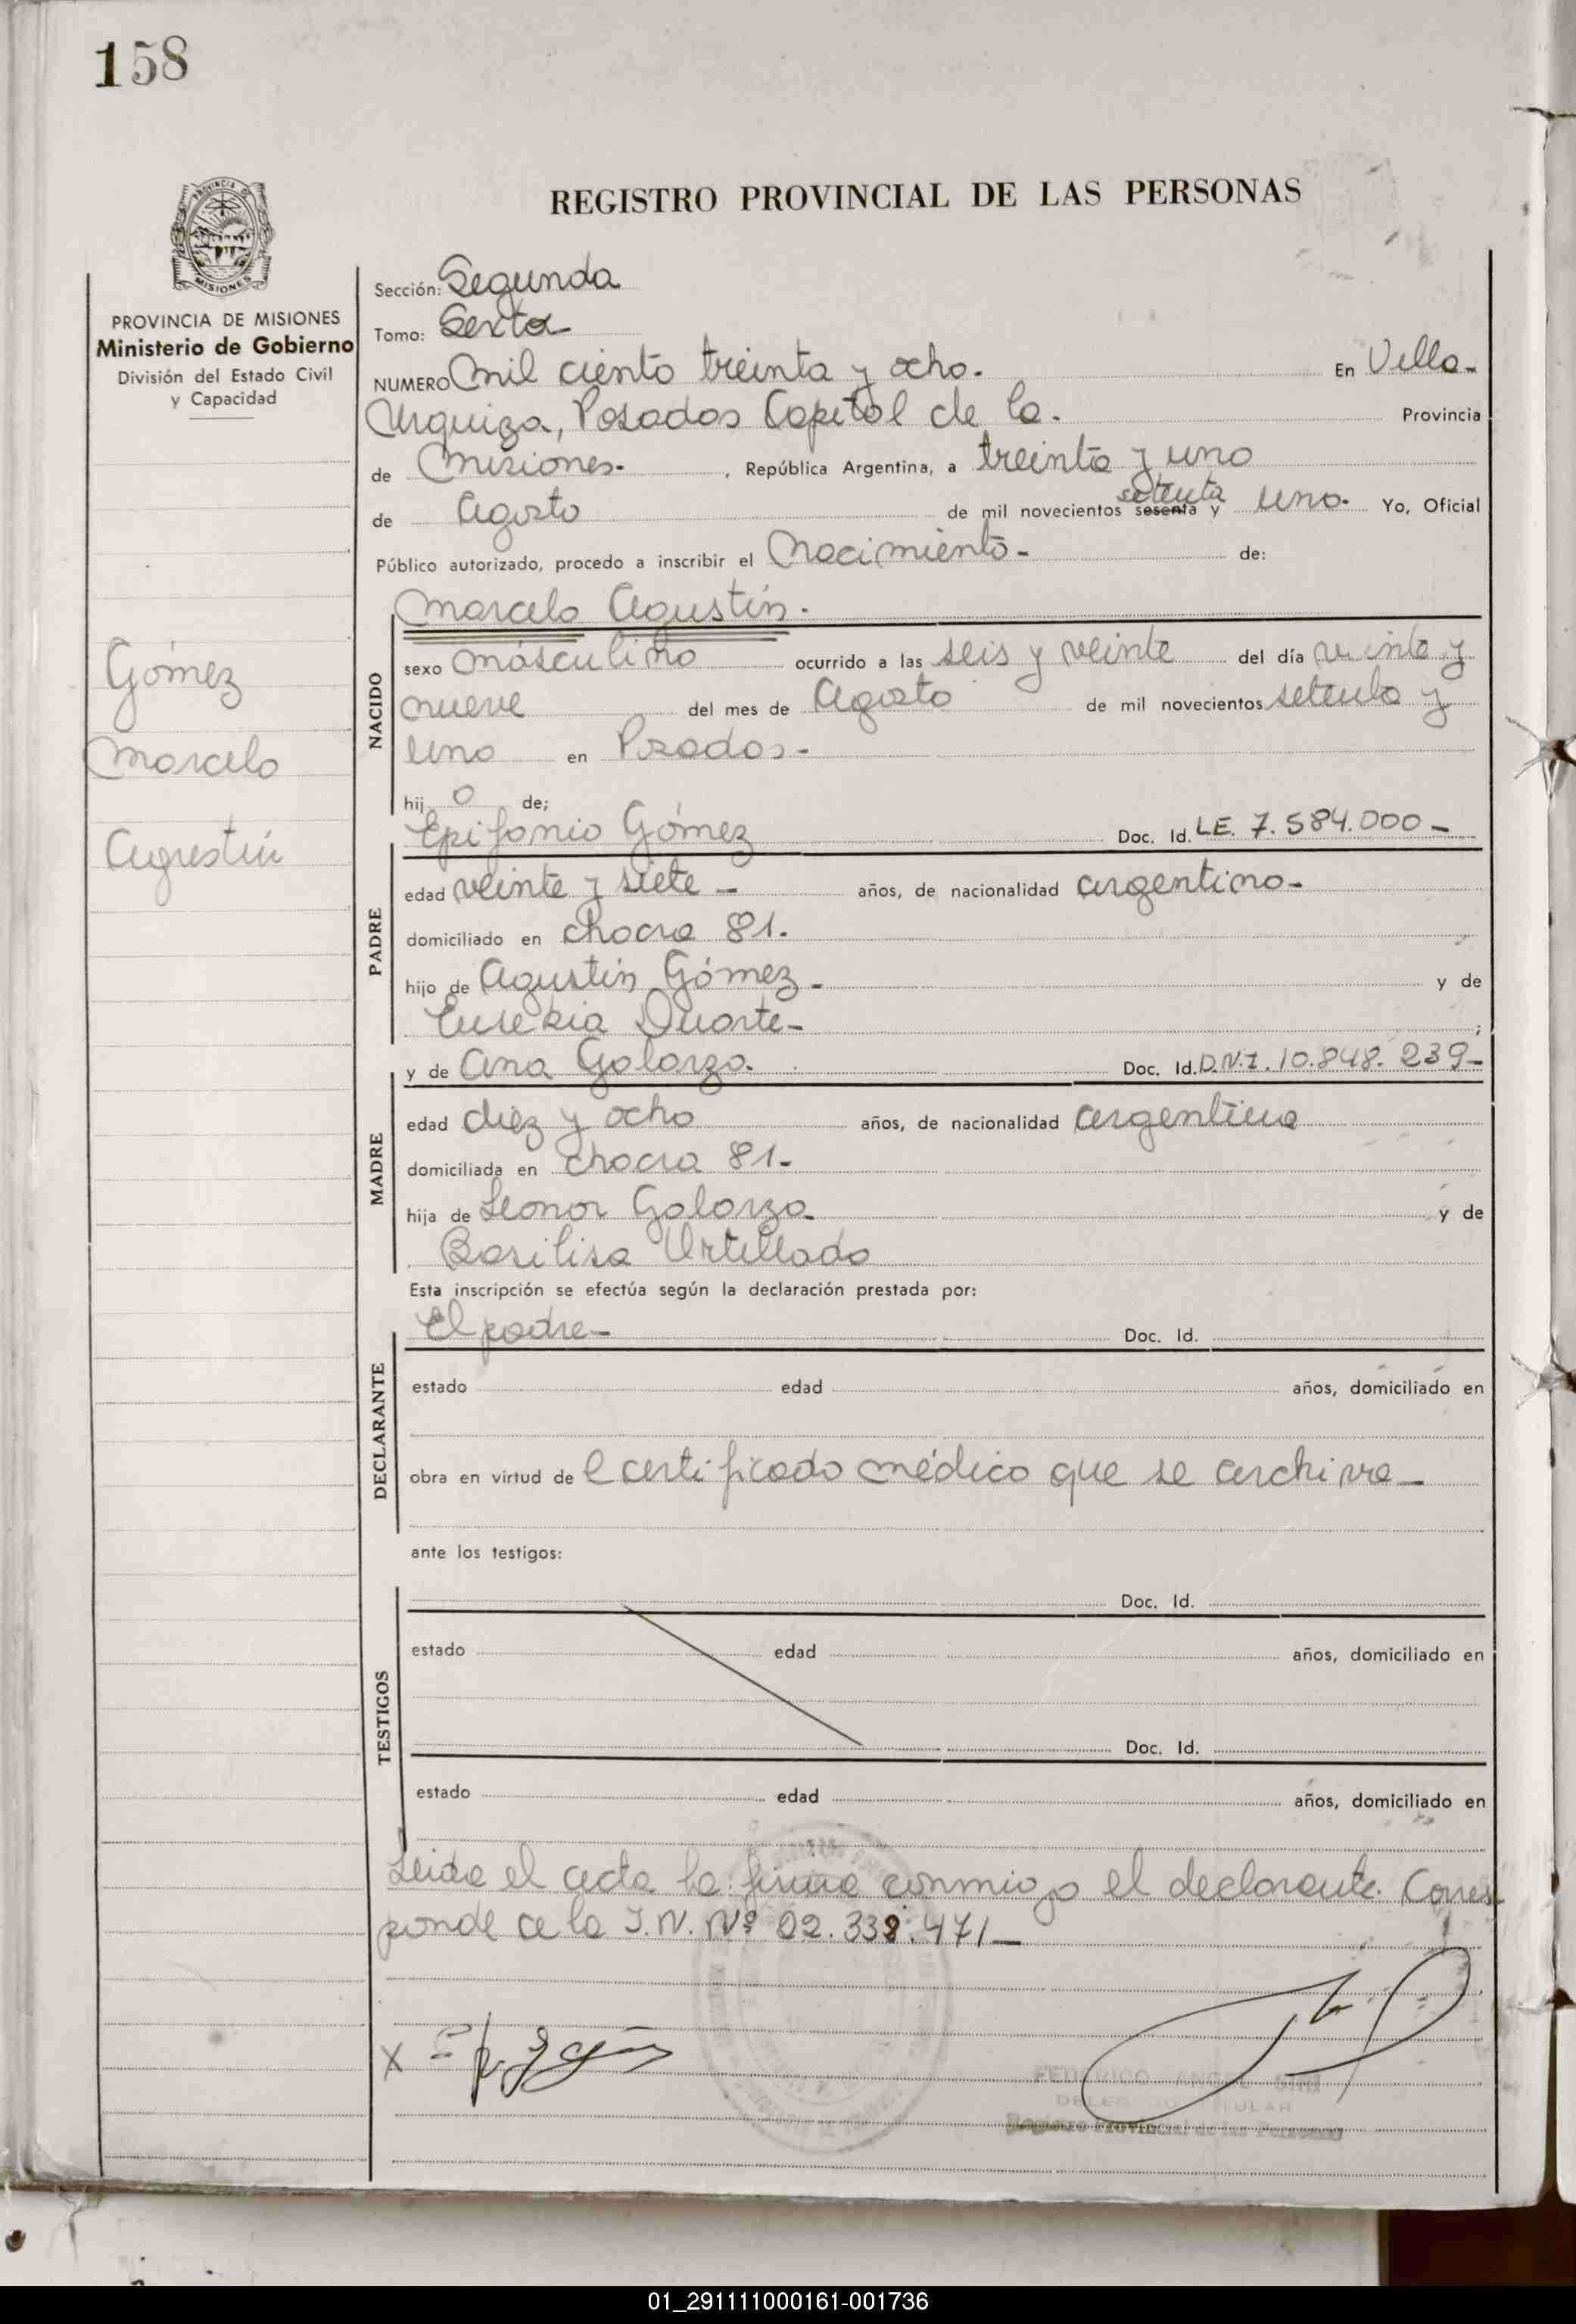 158
REGISTRO PROVINCIAL DE LAS PERSONAS
PROVINCIA DE MISIONES
MISIONES
PROVINCIA DE MISIONES
Ministerio de Gobierno
División del Estado Civil
y Capacidad
Gómez
Marcelo
Agustín
Sección: Segunda
Tomo: Sexto
NUMERO Mil ciento treinta y ocho. En Villa-
Urquiza, Posadas Capital de la. Provincia
de Misiones- , República Argentina, a treinta y uno
setenta
de Agosto de mil novecientos sesenta y uno- Yo, Oficial
Público autorizado, procedo a inscribir el Nacimiento- de:
Marcelo Agustín.
NACIDO
sexo Másculino ocurrido a las seis y veinte del día veinte y
nueve del mes de Agosto de mil novecientos setenta y
uno en Posadas-
hij o de;
Epifanio Gómez Doc. Id. LE. 7.584.000-
PADRE
edad veinte y siete- años, de nacionalidad argentino-
domiciliado en chacra 81.
hijo de Agustín Gómez- y de
Eusebia Duarte- ;
y de Ana Galarza. Doc. Id. D.N.I. 10.848.239-
MADRE
edad diez y ocho años, de nacionalidad argentina
domiciliada en chacra 81-
hija de Leonor Galarza- y de
Basilisa Urtellado
Esta inscripción se efectúa según la declaración prestada por:
El padre- Doc. Id.
DECLARANTE
estado edad años, domiciliado en
obra en virtud de l certificado médico que se archiva-
ante los testigos:
Doc. Id.
TESTIGOS
estado edad años, domiciliado en
Doc. Id.
estado edad años, domiciliado en
Leida el acta la firma conmigo el declarante. Corres
ponde a la I.N. Nº 02.338.471-
X
FEDERICO
Registro Provincial de las Personas
01_291111000161-001736